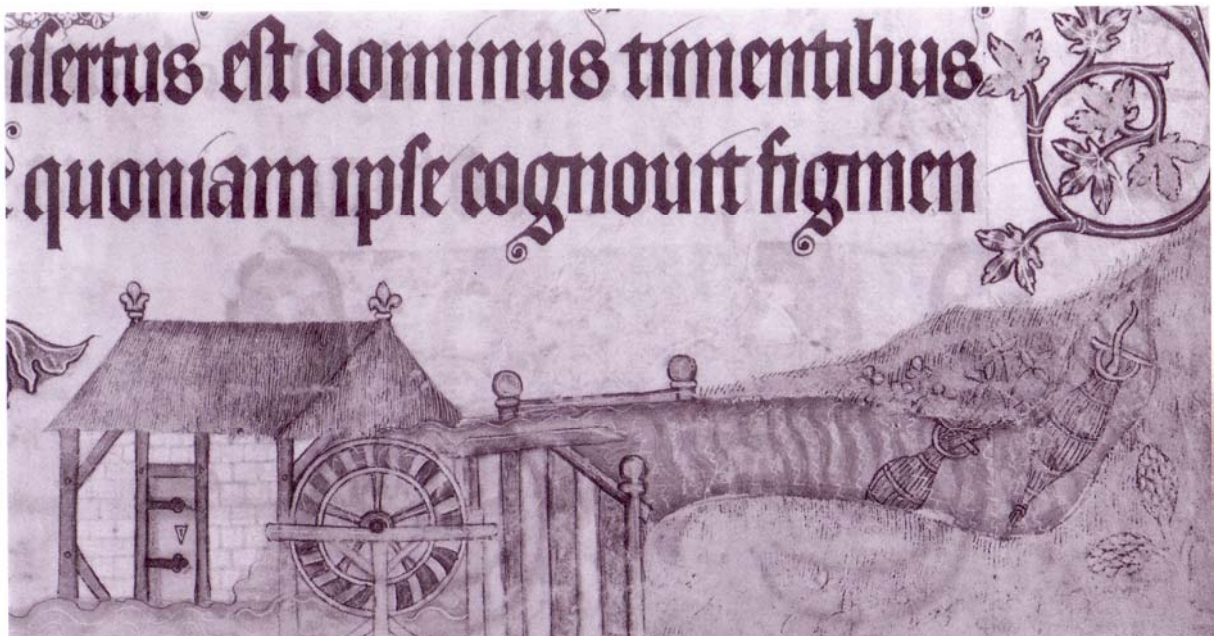 isertus est dominus timentibus
quoniam ipse cognouit figmen